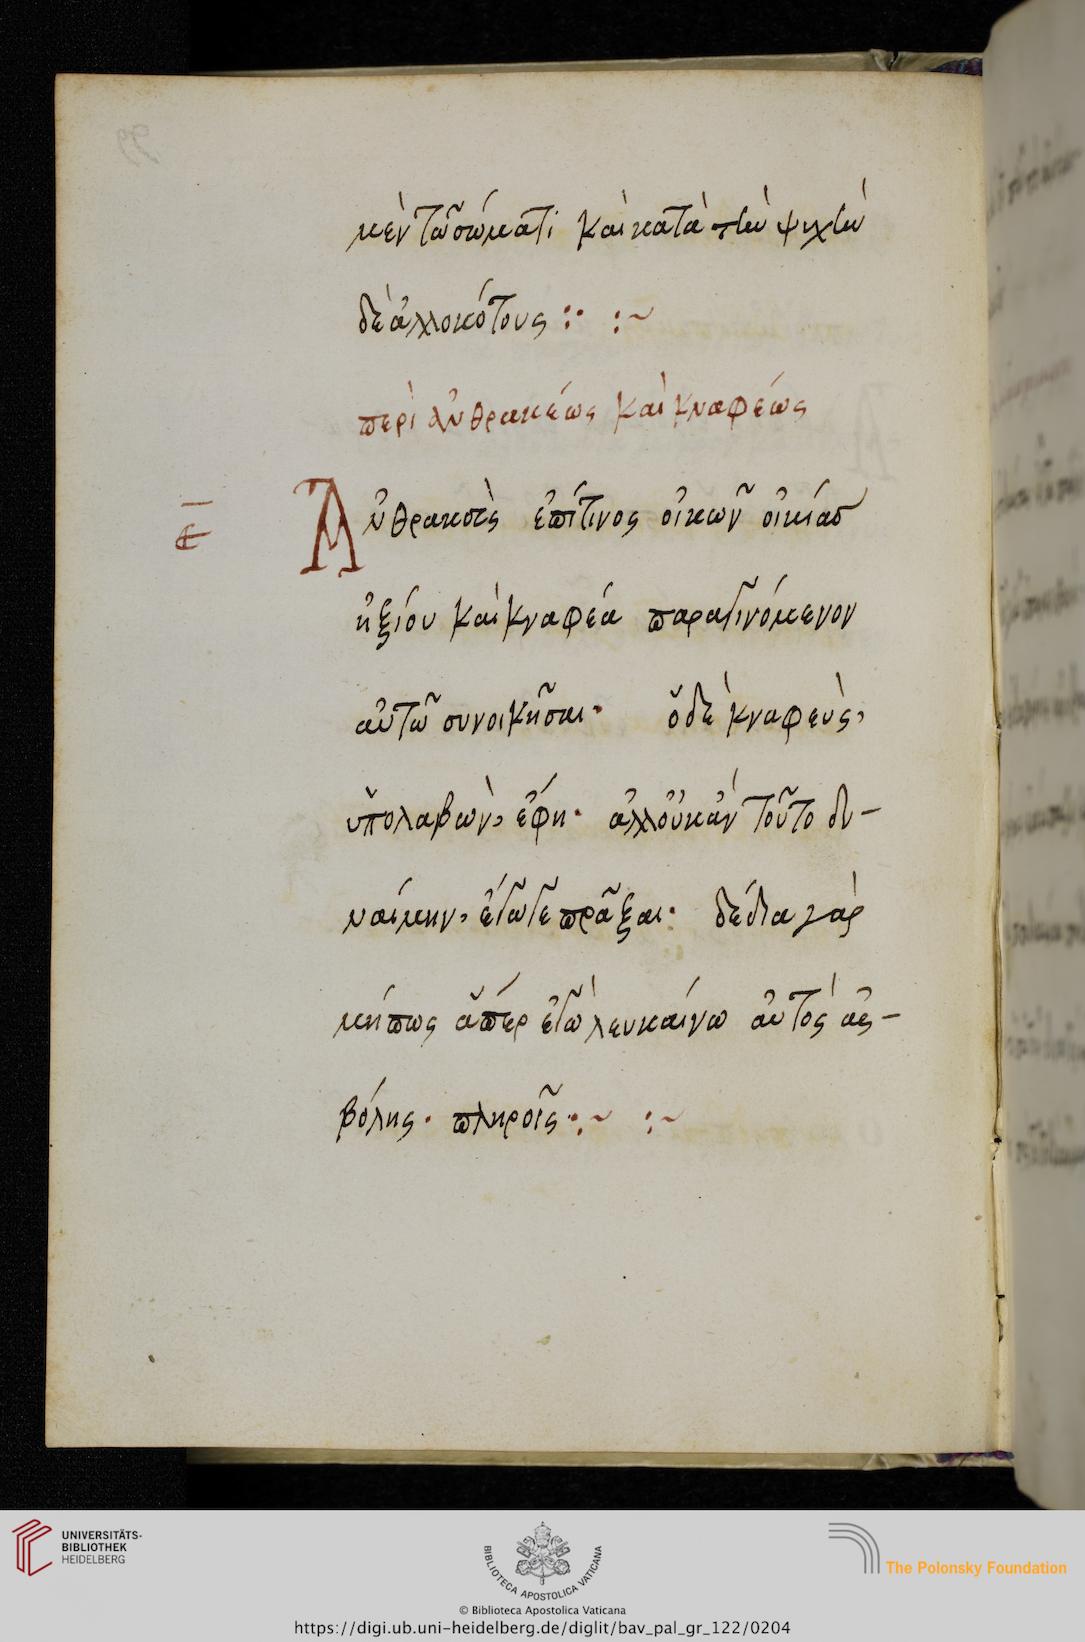 μὲν τῶ σώματι καὶ κατὰ τὴν ψυχὴν
δὲ ἀλλοκότους :· :~
περὶ ἀνθρακέως καὶ κναφέως
Ἀνθρακεὺς ἐπί τινος οἰκῶν οἰκίας
ε
ἠξίου καὶ κναφέα παραγινόμενον
αὐτῶ συνοικῆσαι· ὁ δὲ κναφεὺς,
ὑπολαβὼν, ἔφη· ἀλλ οὐκ ἂν τοῦτο δυ-
ναίμην, ἔγωγε πρᾶξαι· δέδια γὰρ
μήπως ἅπερ ἐγὼ λευκαίνω αὐτὸς ἀσ-
βόλης· πληροῖς :~ :~
99
UNIVERSITÄTS-
BIBLIOTHEK
HEIDELBERG
BIBLIOTECA APOSTOLICA VATICANA
The Polonsky Foundation
© Biblioteca Apostolica Vaticana
https://digi.ub.uni-heidelberg.de/diglit/bav_pal_gr_122/0204